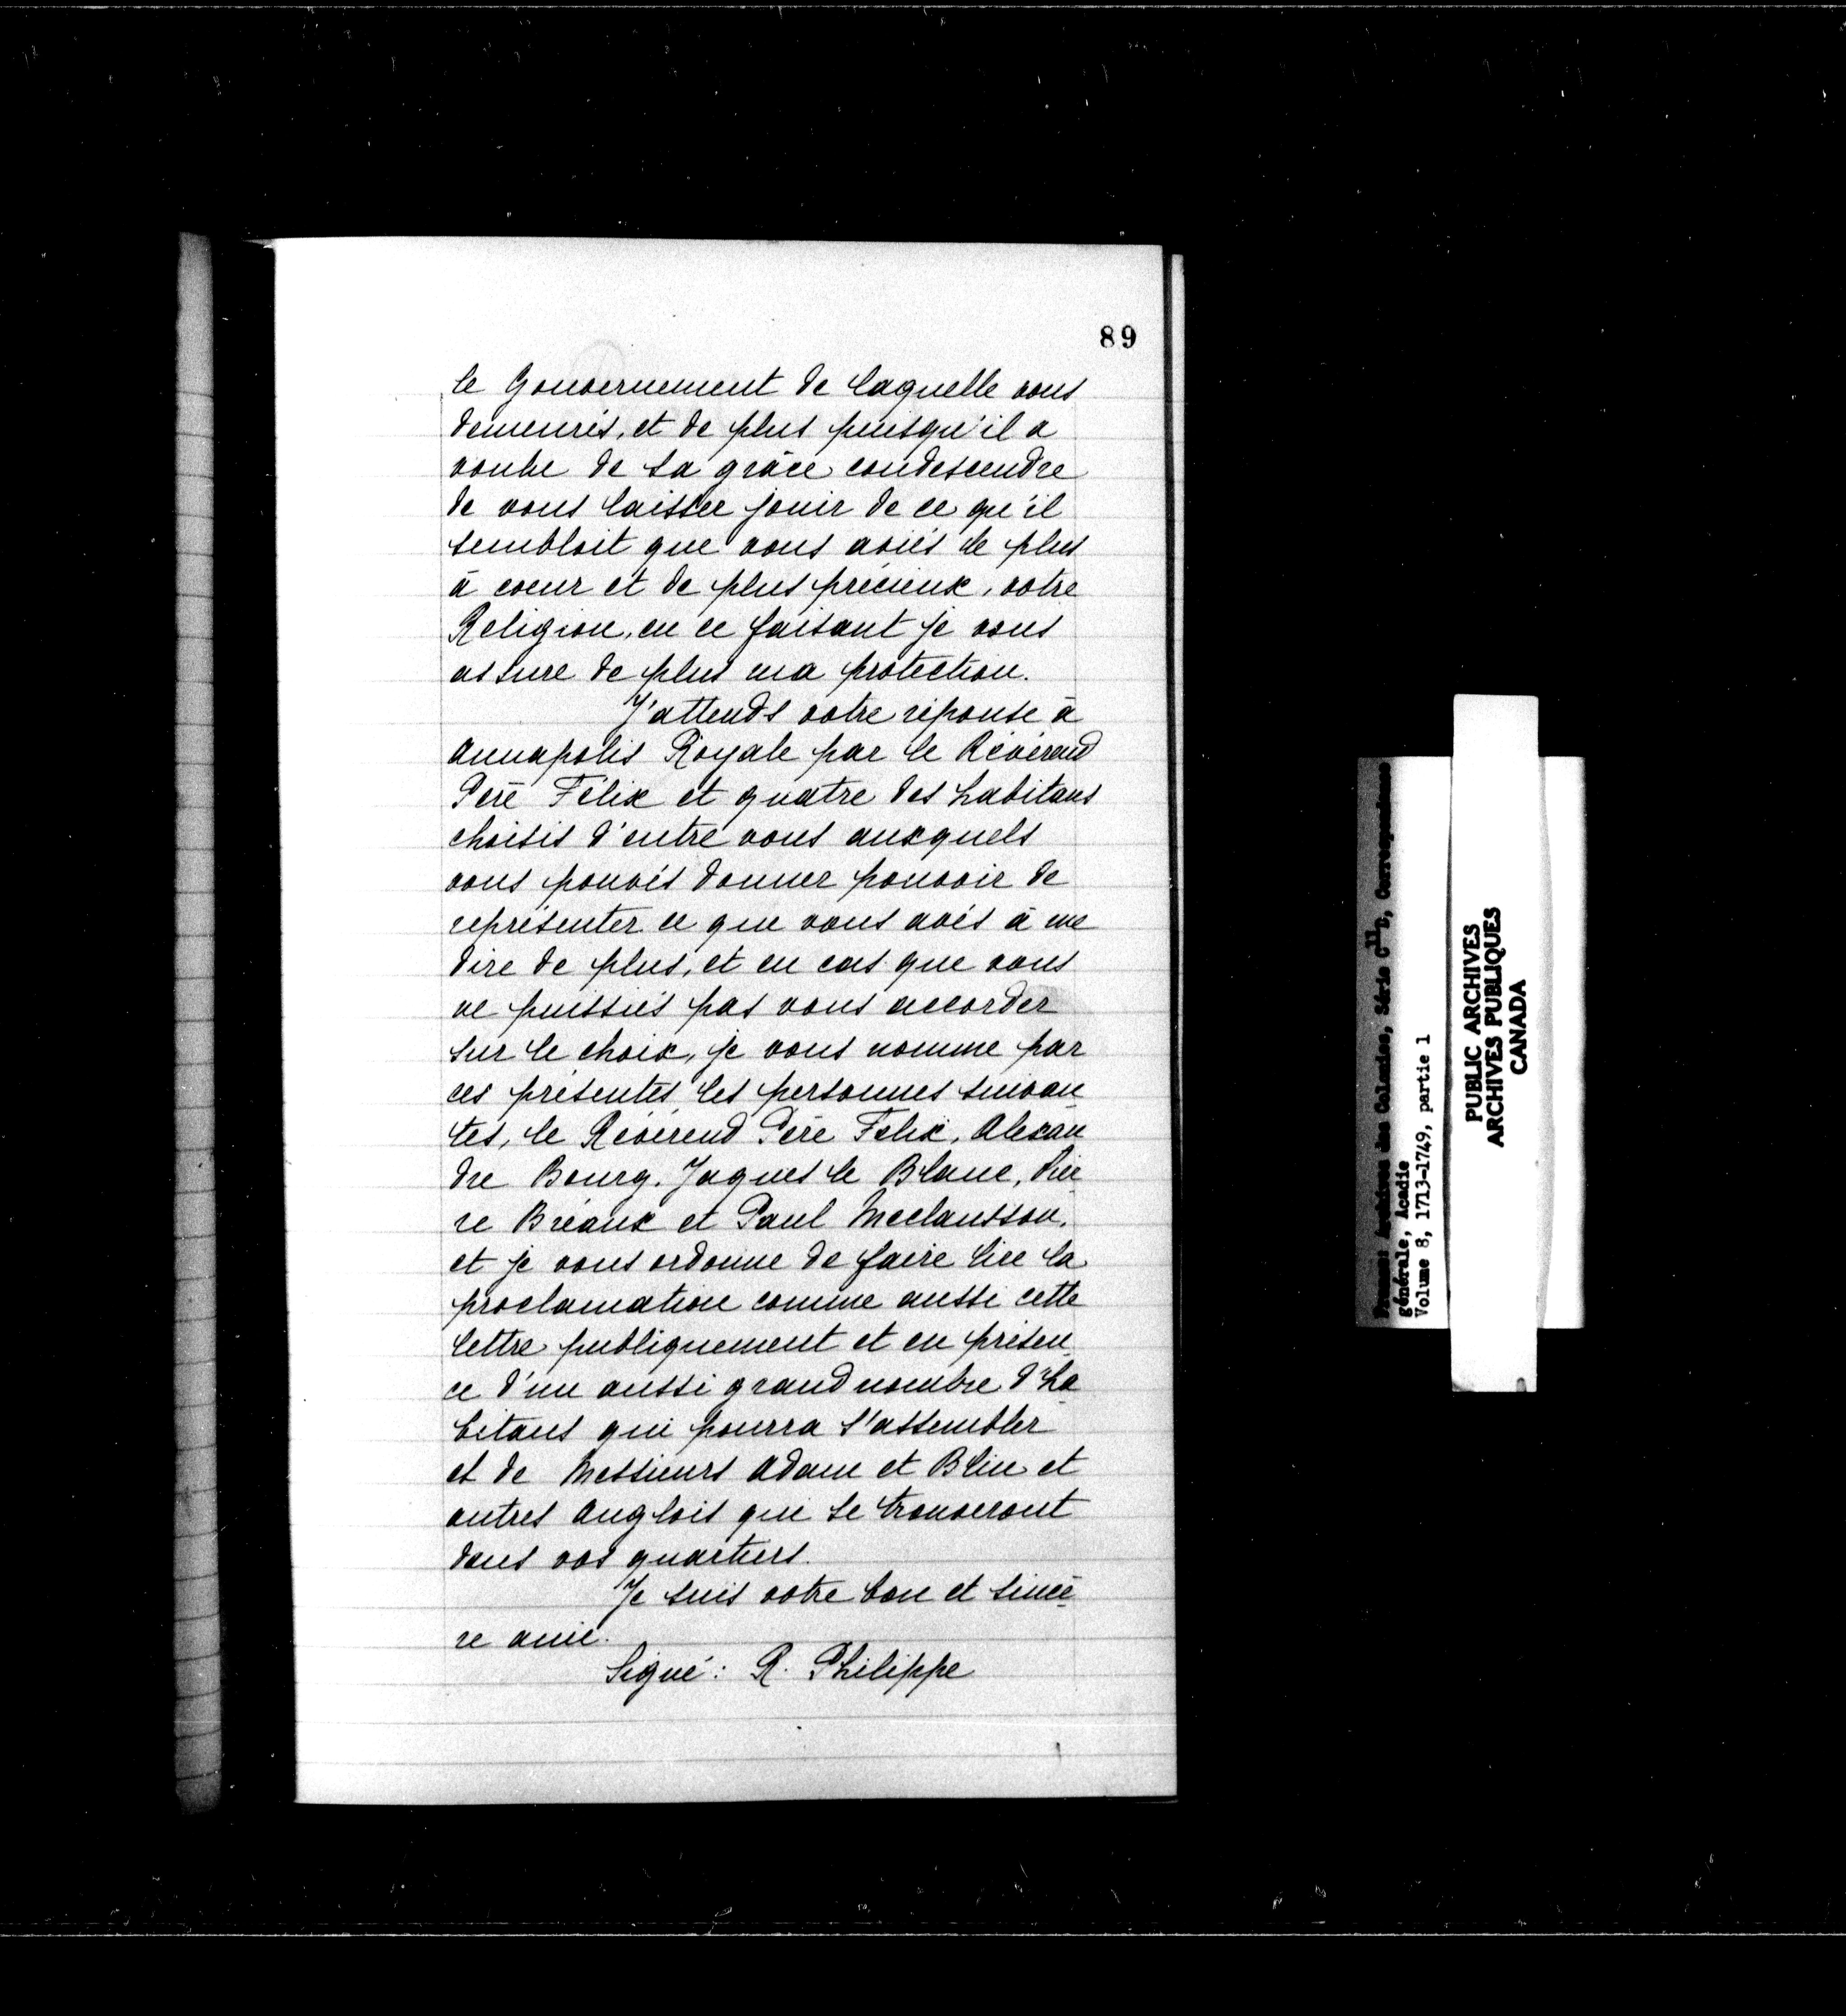 89
le Gouvernement de laquelle vous
demeurés, et de plus puisqu'il a
voulu de sa grâce condescendre
de vous laisser jouir de ce qu'il
sembloit que vous aviés de plus
à coeur et de plus précieux, votre
Religion, en ce faisant je vous
assure de plus ma protection.
J'attends votre réponse à
Annapolis Royale par le Révérend
Père Félix et quatre des habitans
choisis d'entre vous auxquels
vous pouvés donner pouvoir de
représenter ce que vous avés à me
dire de plus, et en cas que vous
ne puissiés pas vous accorder
sur le choix, je vous nomme par
ces présentes les personnes suivan
tes, le Révérend Père Félix, Alexan
dre Bourg, Jaques le Blanc, Pier
re Bréaux et Paul Meclansson,
et je vous ordonne de faire lire la
proclamation comme aussi cette
lettre publiquement et en présen
ce d'un aussi grand nombre d'ha
bitans qui pourra s'assembler
et de Messieurs Adam et Blin et
autres Anglois qui se trouveront
dans vos quartiers.
Je suis votre bon et sincè
re amie.
Signé: R. Philippe
France: Archives des Colonies, Série C11D, Correspondance
générale, Acadie
Volume 8, 1713-1749, partie 1
PUBLIC ARCHIVES
ARCHIVES PUBLIQUES
CANADA